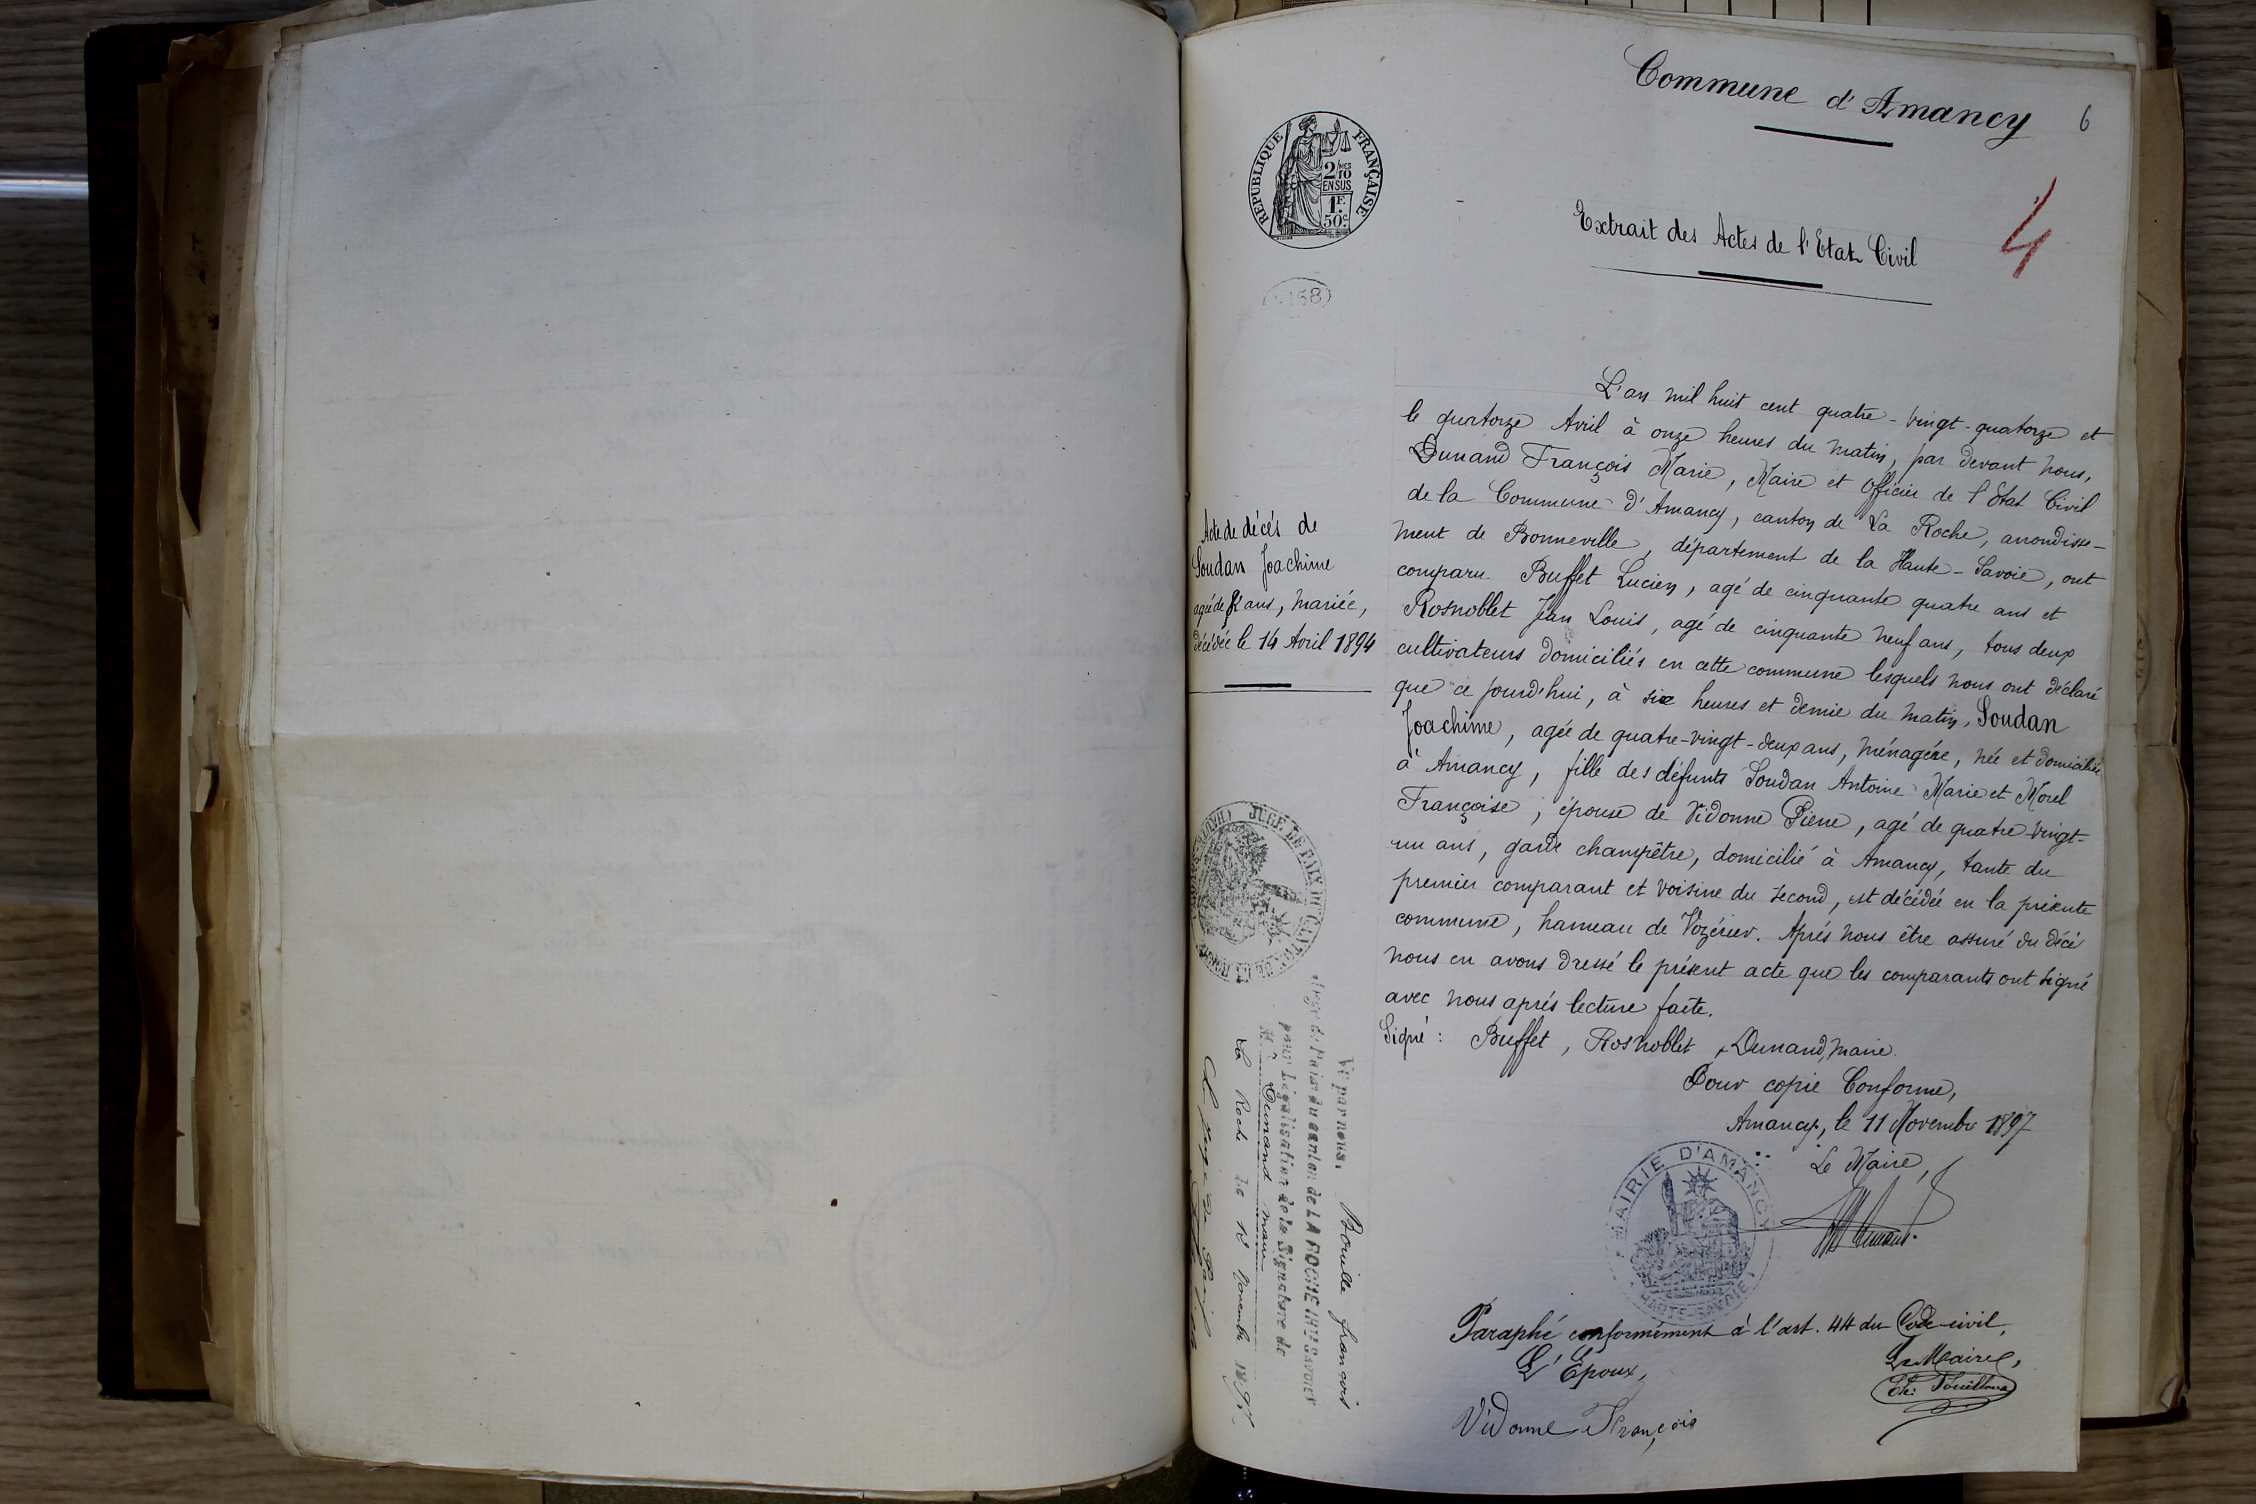 Commune d'Amancy
6
RÉPUBLIQUE FRANÇAISE
2/10
EN SUS
1F
50c
4
Extrait des Actes de l'Etat Civil
Acte de décés de
Soudan Joachime
agée de 82 ans, mariée,
décédée le 14 Avril 1894
L'an mil huit cent quatre-vingt-quatorze et
le quatorze Avril à onze heures du matin, par devant nous,
Dunand François Marie, Maire et Officier de l'Etat Civil
de la Commune d'Amancy, canton de La Roche, arrondisse-
ment de Bonneville, département de la Haute-Savoie, ont
comparu Buffet Lucien, agé de cinquante quatre ans et
Rosnoblet Jean Louis, agé de cinquante neuf ans, tous deux
cultivateurs domiciliés en cette commune lesquels nous ont déclaré
que ce jourd'hui, à six heures et demie du matin, Soudan
Joachime, agée de quatre-vingt-deux ans, ménagère, née et domiciliée
à Amancy, fille des défunts Soudan Antoine Marie et Morel
Françoise; épouse de Vidonne Pierre, agé de quatre-vingt-
un ans, garde champêtre, domicilié à Amancy, tante du
premier comparant et voisine du second, est décédée en la présente
commune, hameau de Vozérier. Aprés nous être assuré du décé
nous en avons dressé le présent acte que les comparants ont signé
avec nous aprés lecture faite.
Signé: Buffet, Rosnoblet, Dunand, maire.
Pour copie Conforme,
Amancy, le 11 Novembre 1897
Le Maire,
MAIRIE D'AMANCY
HAUTE-SAVOIE
JUGE DE PAIX DU CANTON DE LA ROCHE
Vu par nous, Bouille françois
Juge de Paix du canton de LA ROCHE (Hte SAVOIE)
pour Légalisation de la Signature de
M. Dunand maire
La Roche le 12 Novembre 1897.
Le Juge de Paix
Paraphé conformément à l'art. 44 du Code civil,
L'Epoux,
Le Maire,
Vidonne François